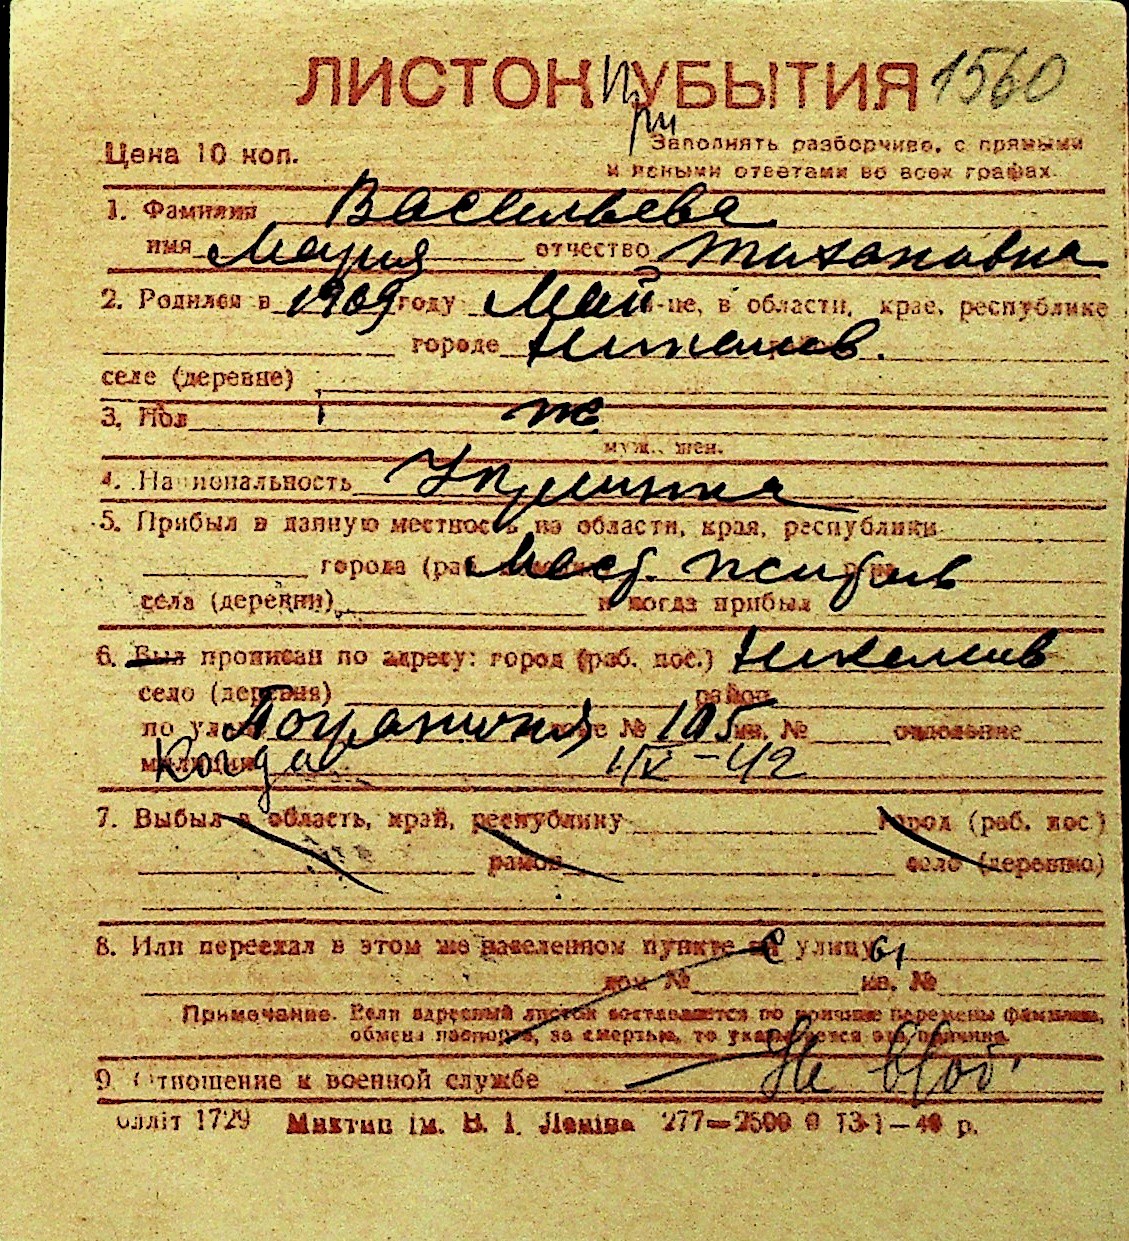 ЛИСТОК УБЫТИЯ 1560
при
Цена 10 коп.
Заполнять разборчиво, с прямыми
и ясными ответами во всех графах.
1. Фамилия Васильева
имя Мария отчество Тихоновна
2. Родился в 1909 году Май м-це, в области, крае, республике
городе Николаев.
селе (деревне)
3. Пол ж
муж., жен.
4. Национальность Украинка
5. Прибыл в данную местность из области, края, республики
города (раб. Мест. житель
села (деревни) и когда прибыл
6. Был прописан по адресу: город (раб. пос.) Николаев
село (деревня) район
по улице Погранична доме № 105 кв. № отделение
милиции Когда 1/IX-42
7. Выбыл в область, край, республику город (раб. пос)
район село (деревню)
8. Или переехал в этом же населенном пункте с улицы
дом № кв. №
Примечание. Если адресный листок составляется по причине перемены фамилии,
обмена паспорта, за смертью, то указывается эта причина.
9. Отношение к военной службе Не в/об
1729 Миктип ім. В. І. Леніна 277—2500 0 13-1—40 р.